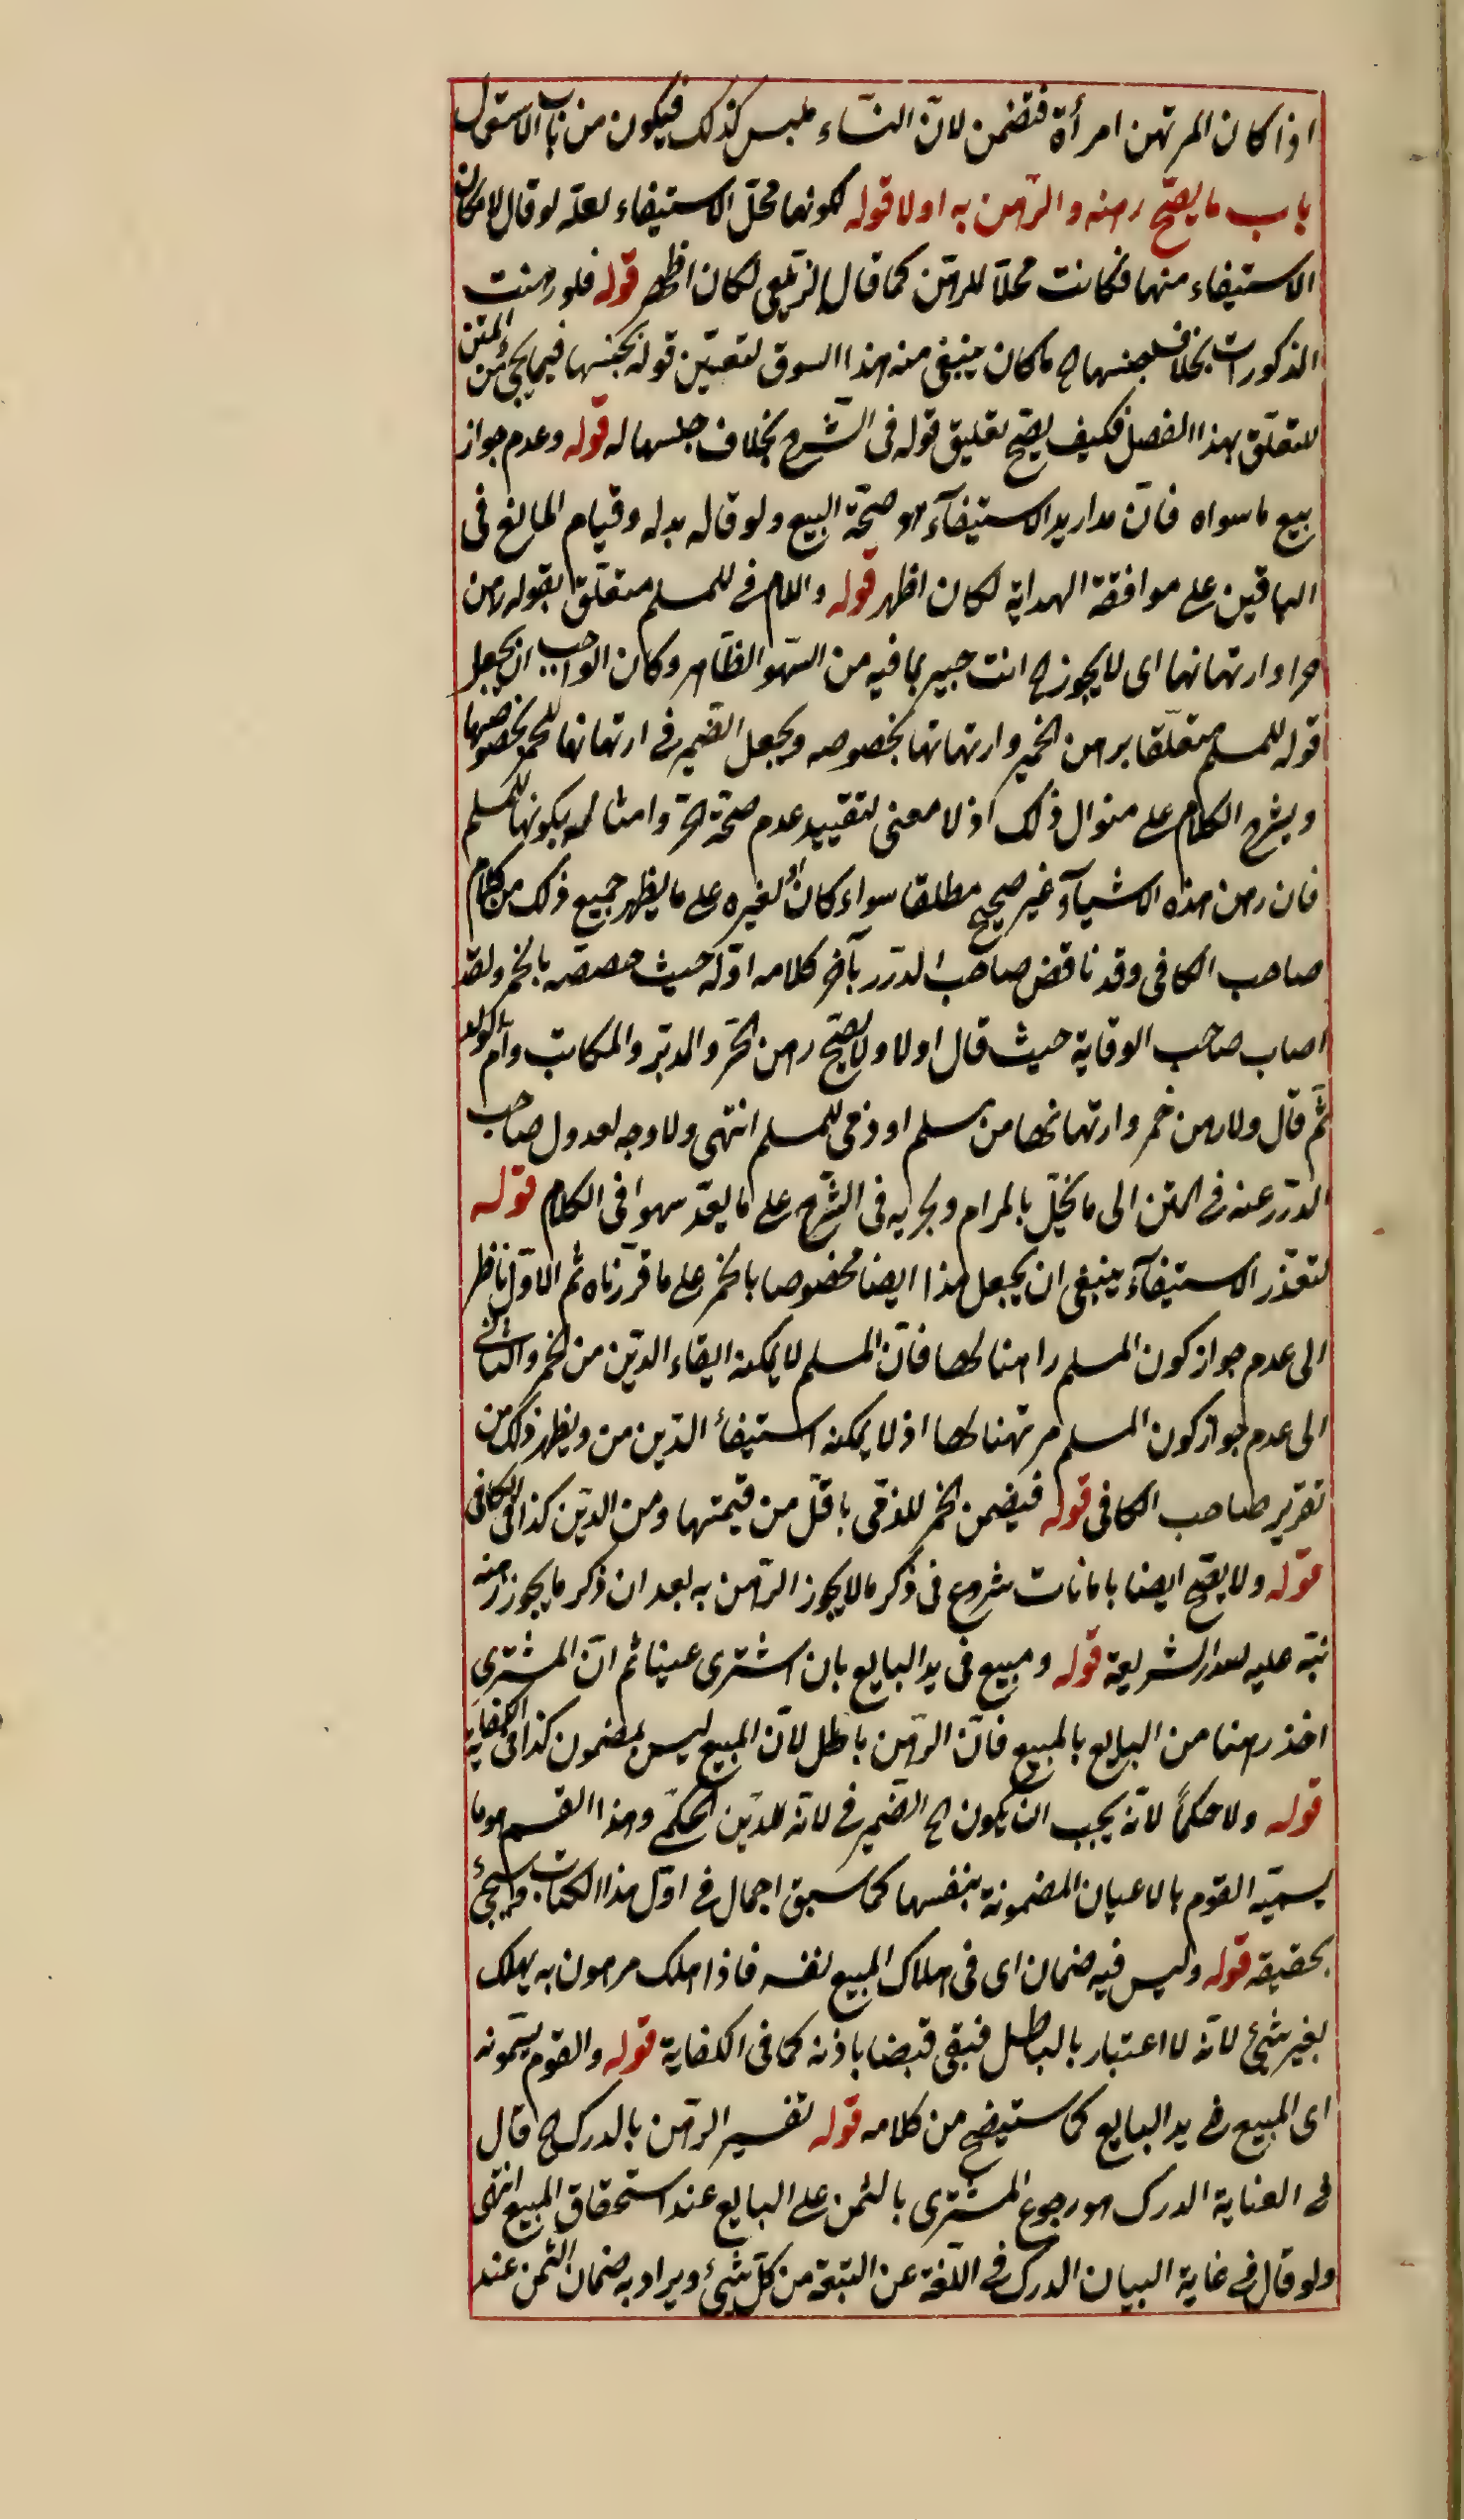 اذا كان المرتهن امرأة فتضمن لانّ النسّاء يلبس كذلك فيكون من باب الاستعمال
باب ما يصحّ رهنه والرّهن به اولا قوله لكونها محلّ الاستيفاء لعلّه لو قال لامكان
الاستيفاء منها فكانت محلّا للرهن كما قال الزيلعى لكان اظهر قوله فلو رهنت
المذكورات بخلاف جنسها الخ ما كان ينبغى منه هذا السوق لتعيّن قوله بجنسها فيما يجئ من المتن
للتعلّق بهذا الفصل فكيف يصحّ تعليق قوله فى الشّرح بخلاف جنسها له قوله وعدم جواز
بيع ما سواه فانّ مدار يد الاستيفآء هو صحّة البيع ولو قال بدله وقيام المانع فى
الباقين على موافقة الهداية لكان اظهر قوله واللام فى للمسلم متعلّق بقوله رهن
حر او ارتهانها اى لا يجوز الخ انت خبير بما فيه من السّهو الظّاهر وكان الواجب ان يجعل
قوله للمسلم متعلّقا برهن الخمر وارتهانها بخصوصه ويجعل الضّمير فى ارتهانها للخمر بخصوصها
ويشرح الكلام على منوال ذلك اذ لا معنى لتقييد عدم صحّة الحرّ وامثاله بكونها للمسلم
فان رهن هذه الاشيآء غير صحيح مطلقا سواء كان له او لغيره على ما يظهر جميع ذلك من كلام
صاحب الكافى وقد ناقض صاحب الدّرر بآخر كلامه اوّله حيث خصصّه بالخمر ولقد
اصاب صاحب الوقاية حيث قال اولا ولا يصحّ رهن الحرّ والمدبّر والمكاتب وامّ الولد
ثمّ قال ولا رهن خمر وارتهانها من مسلم او ذمى للمسلم انتهى ولا وجه لعدول صاحب
الدّرر عنه فى المتن الى ما يخلّ بالمرام ويجريه فى الشّرح على ما يعدّ سهوا فى الكلام قوله
لتعذّر الاستيفآء ينبغى ان يجعل هذا ايضا مخصوصا بالخمر على ما قرّرناه ثم الاوّل ناظر
الى عدم جواز كون المسلم راهنا لها فانّ المسلم لا يمكنه ايفاء الدّين من الخمر والثانى
الى عدم جواز كون المسلم مرتهنا لها اذ لا يمكنه استيفاء الدّين من ويظهر ذلك من
تقرير صاحب الكافى قوله فيضمن الخمر للذمّى باقلّ من قيمتها ومن الدّين كذا فى الكافى
قوله ولا يصحّ ايضا بامانات شروع فى ذكر ما لا يجوز الرّهن به بعد ان ذكر ما يجوز رهنه
نبّه عليه صدر الشريعة قوله ومبيع فى يد البايع بان اشترى عينا ثم انّ المشترى
اخذ رهنا من البايع بالمبيع فانّ الرّهن باطل لانّ المبيع ليس بمضمون كذا فى الكفاية
قوله ولا حكمًا لانّه يجب ان يكون الخ الضّمير فى لانّه للدّين الحكمّى وهذا القسم هو ما
يسمّيه القوم بالاعيان المضمونة بنفسها كما سبق اجمال فى اوّل هذا الكتاب وسيجئ
تحقيقه قوله وليس فيه ضمان اى فى هلاك المبيع نفسه فاذا هلك مرهون به يهلك
بغير شئ لانّه لا اعتبار بالباطل فبقى قبضا باذنه كما فى الكفاية قوله والقوم يسمّونه
اى المبيع فى يد البايع كما ستيضح من كلامه قوله تفسير الرّهن بالدرك الخ قال
فى العناية الدرك هو رجوع المشترى بالثمن على البايع عند استحقاق المبيع انتهى
ولو قال فى غاية البيان الدرك فى اللّغة عن التبعّة من كلّ شئ ويراد به ضمان الثّمن عند